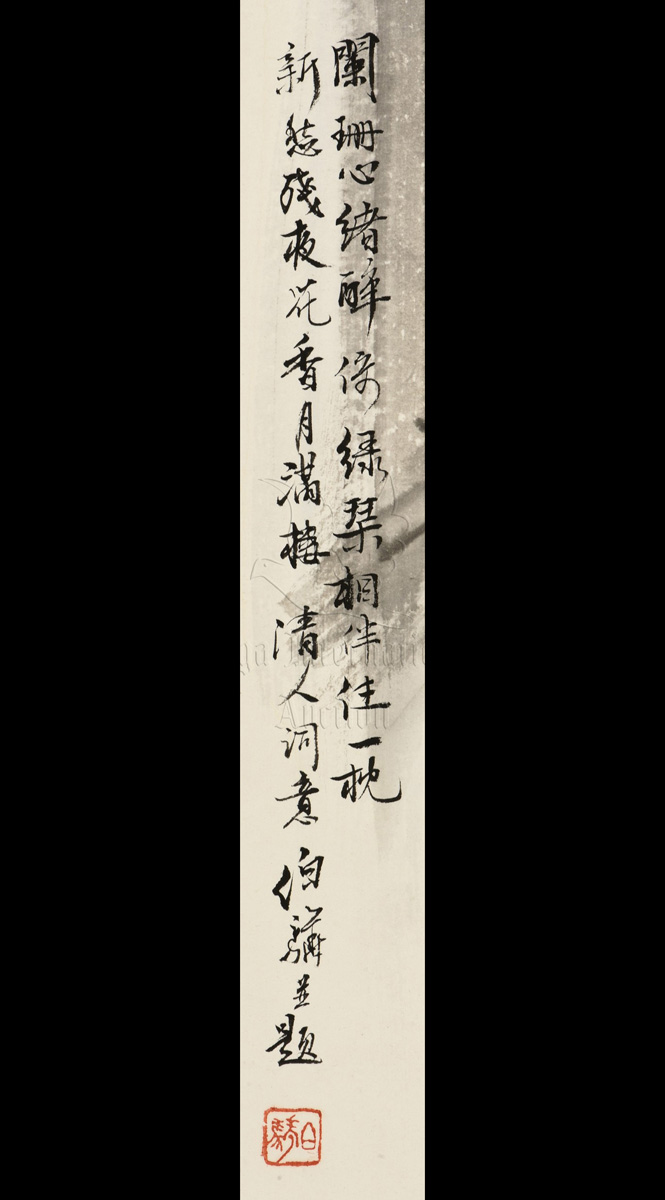 闌珊心緒醉倚綠琴相伴住一枕
新愁殘夜花香月滿樓 清人詞意 伯驌並題
Auction